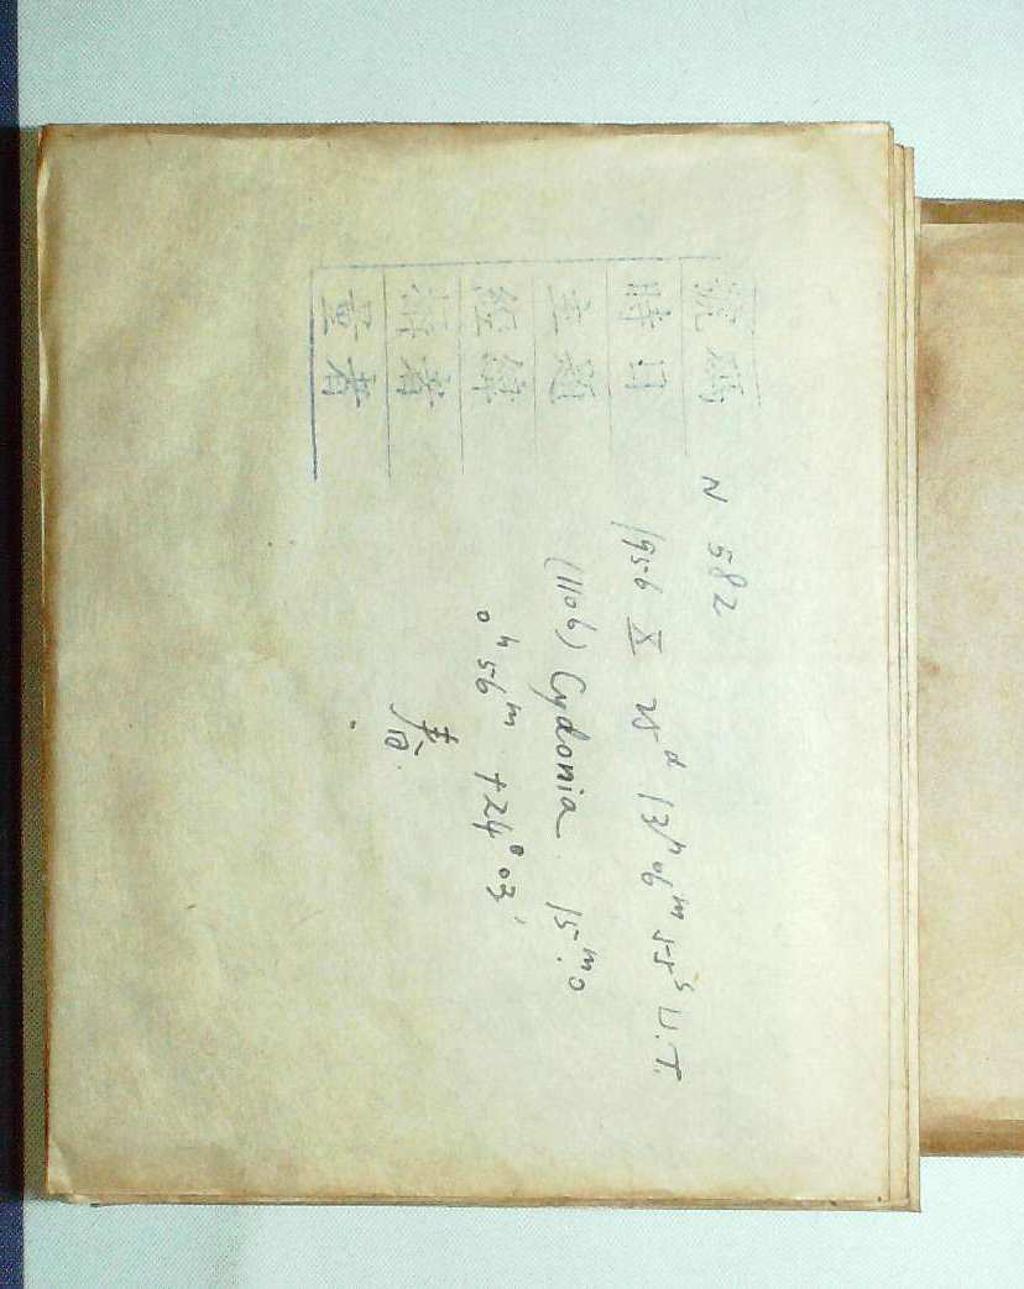 號碼 N 582
時日 1956 X 25ᵈ 13ʰ06ᵐ55ˢ U.T.
主題 (1106) Cydonia 15ᵐ.0
經緯 0ʰ56ᵐ +24°03′
誤者
量者